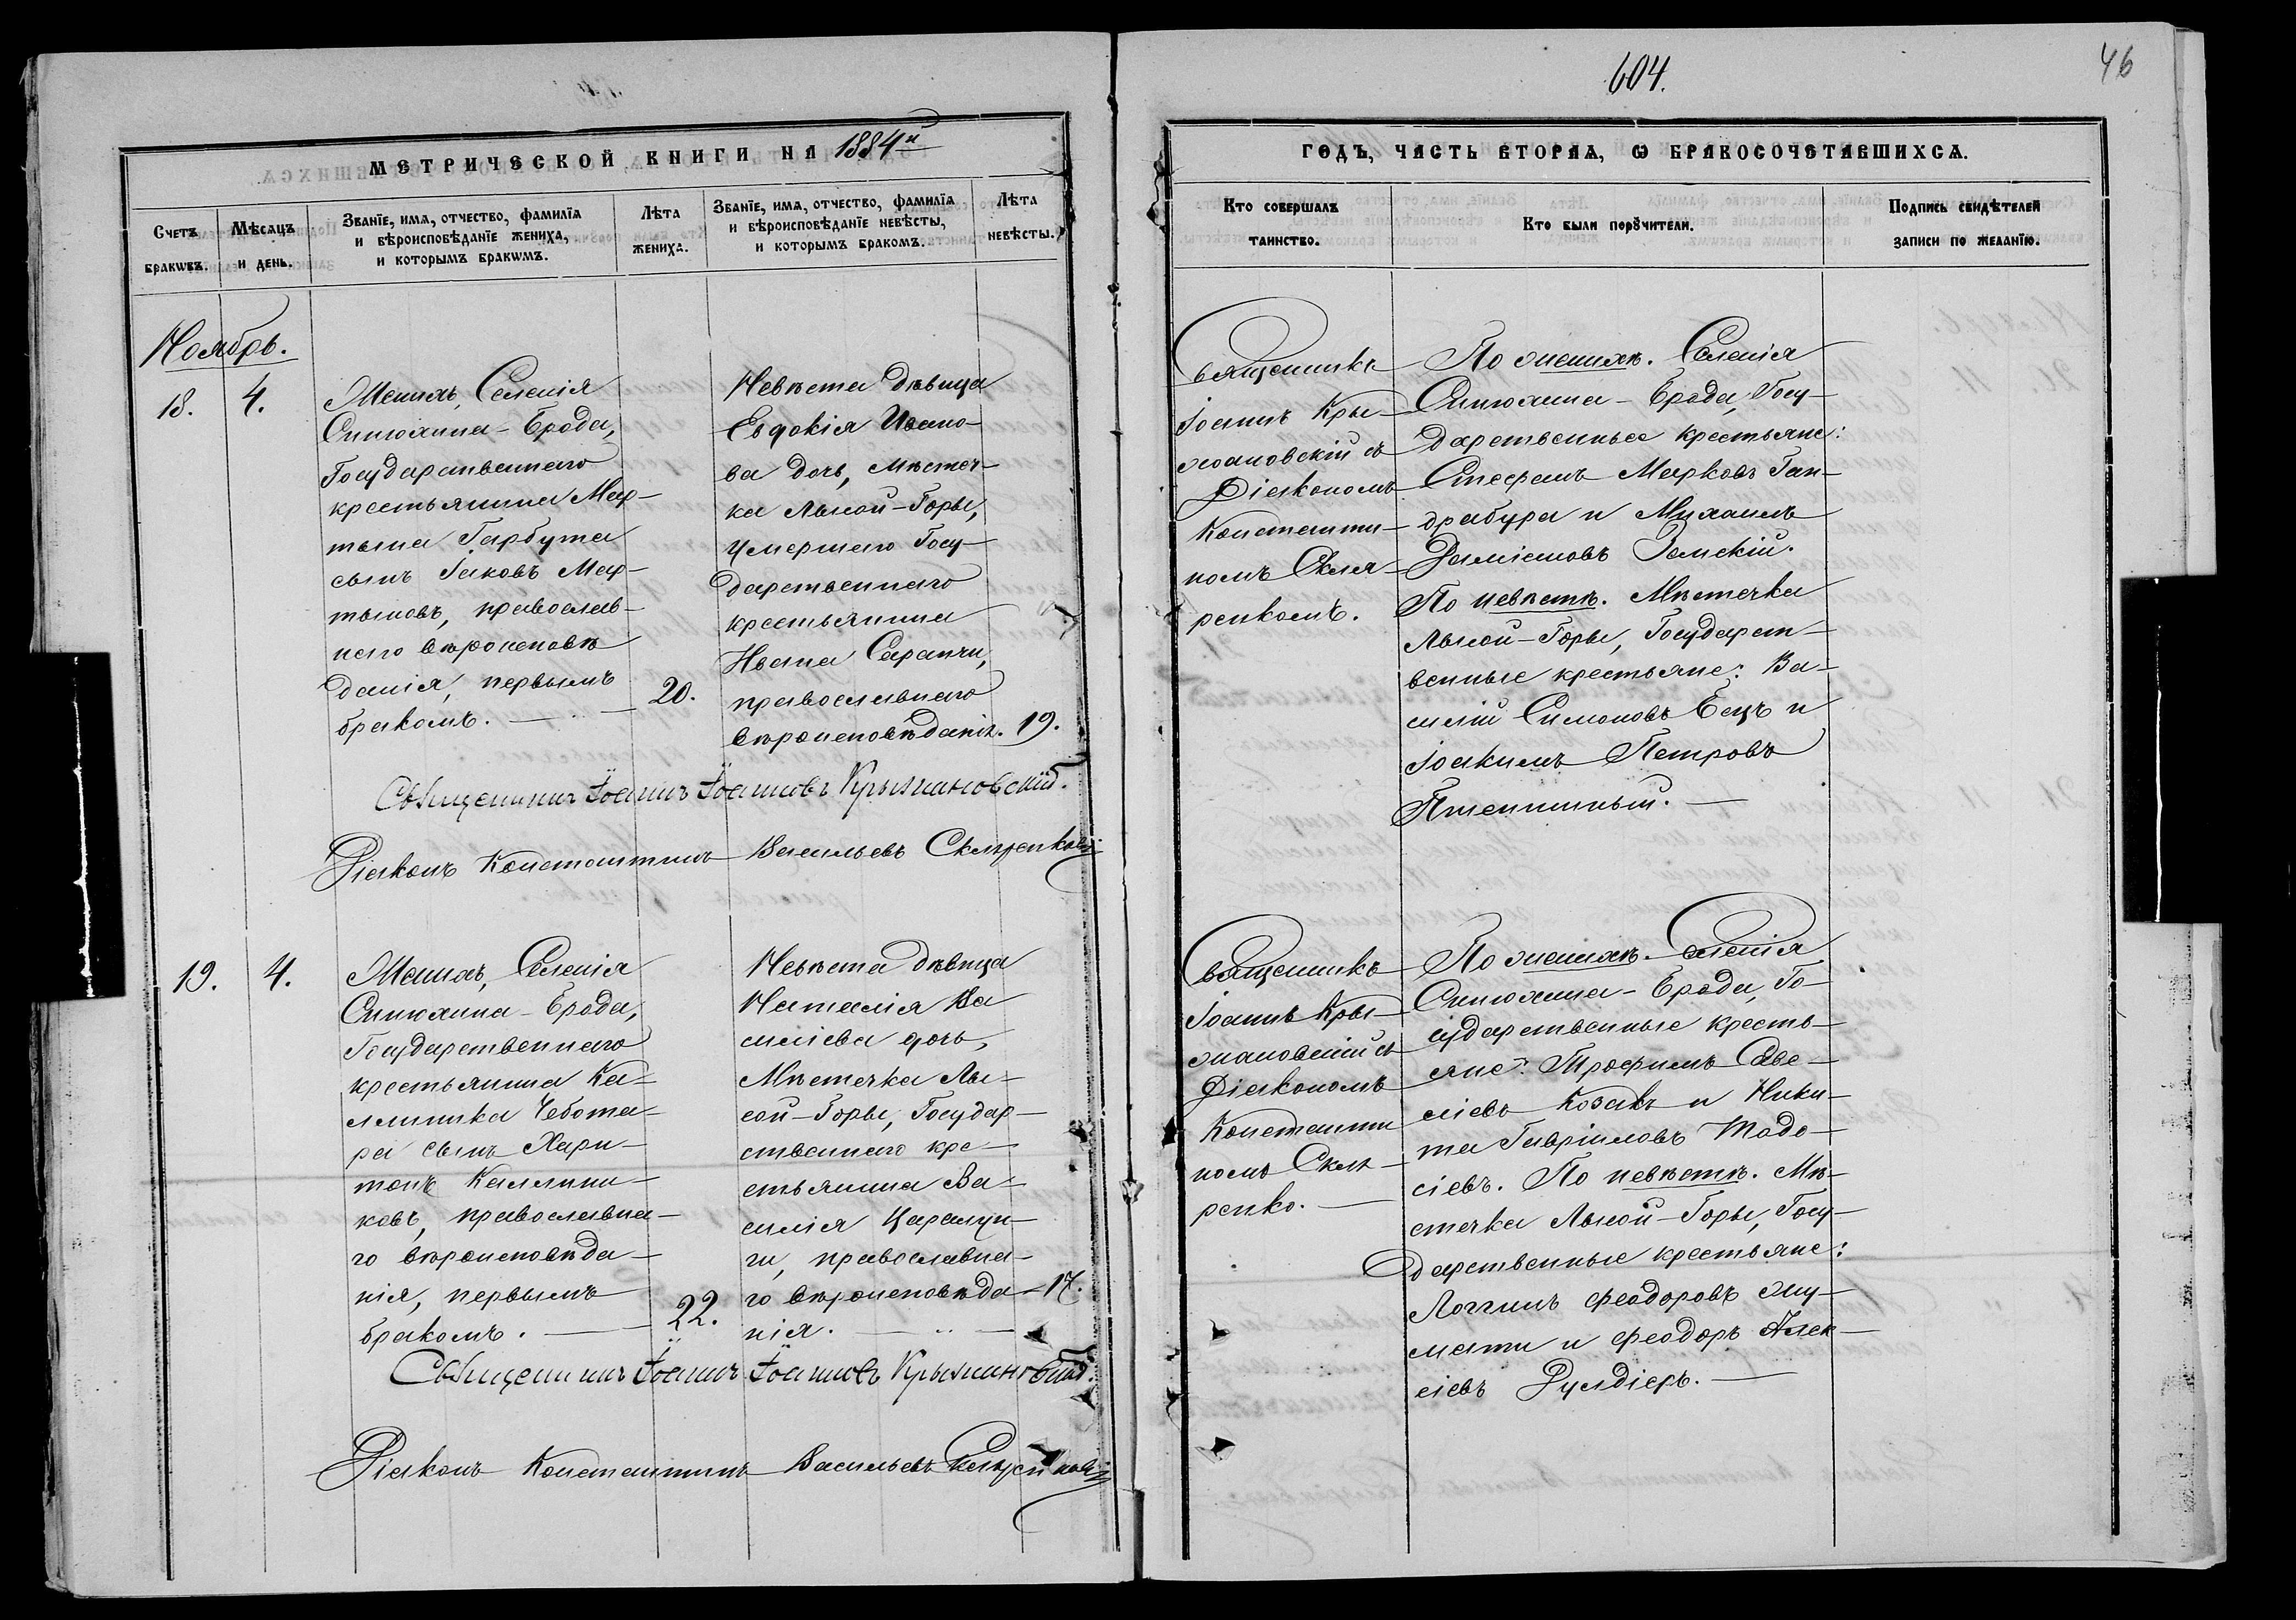 604.
46
МЕТРИЧЕСКОЙ КНИГИ НА 1884й
ГОДЪ, ЧАСТЬ ВТОРАЯ, Ѡ БРАКОСОЧЕТАВШИХСЯ.
Счетъ браковъ.
Мѣсяцъ и день.
Званіе, имя, отчество, фамилія
и вѣроисповѣданіе жениха,
и которымъ бракомъ.
Лѣта
жениха.
Званіе, имя, отчество, фамилія
и вѣроисповѣданіе невѣсты,
и которымъ бракомъ.
Лѣта
невѣсты.
Кто совершалъ
таинство.
Кто были поручители.
Подпись свидѣтелей
записи по желанію.
Ноябрь.
18. 4.
Женихъ, Селенія
Синюхина-Брода,
Государственнаго
крестьянина Мар-
тына Гарбуза
сынъ Іаковъ Мар-
тыновъ, православ-
наго вѣроисповѣ
данія, первымъ
бракомъ.
20.
Невѣста дѣвица
Евдокія Ивано-
ва дочь, Мѣстеч-
ка Лысой-Горы,
умершаго Госу-
дарственнаго
крестьянина
Ивана Саранчи,
православнаго
вѣроисповѣданія.
19.
Священникъ
Іоаннъ Кры-
жановскій съ
Діакономъ
Константи-
номъ Скля-
ренкомъ.
По женихѣ. Селенія
Синюхина-Брода, Госу-
дарственные крестьяне:
Стефанъ Марковъ Ган-
драбура и Михаилъ
Даміановъ Замскій.
По невѣстѣ. Мѣстечка
Лысой-Горы, Государст-
венные крестьяне: Ва-
силій Симоновъ Ецъ и
Іоакимъ Петровъ
Пшеничный.
Священникъ Іоаннъ Іоанновъ Крыжановскій.
Діаконъ Константинъ Васильевъ Скляренковъ
19. 4.
Женихъ, Селенія
Синюхина-Брода,
Государственнаго
крестьянина Ка-
линника Чебота-
ра сынъ Хари-
тонъ Каллини-
ковъ, православна-
го вѣроисповѣда-
нія, первымъ
бракомъ.
22.
Невѣста дѣвица
Наталія Ва
силіева дочь,
Мѣстечка Лы-
сой-Горы, Государ-
ственнаго кре-
стьянина Ва-
силія
православна-
го вѣроисповѣда-
нія.
17.
Священникъ
Іоаннъ Кры-
жановскій съ
Діакономъ
Константи
номъ Скля-
ренко.
По женихѣ. Селенія
Синюхина-Брода, Го-
сударственные кресть-
яне: Трофимъ Саве-
ліевъ Козакъ и Ники-
та Гавріиловъ Тодо-
сіевъ. По невѣстѣ. Мѣ-
стечка Лысой-Горы, Госу-
дарственные крестьяне:
Логгинъ Феодоровъ
и Феодоръ Алек-
сіевъ
Священникъ Іоаннъ Іоанновъ Крыжановскій.
Діаконъ Константинъ Васильевъ Скляренковъ